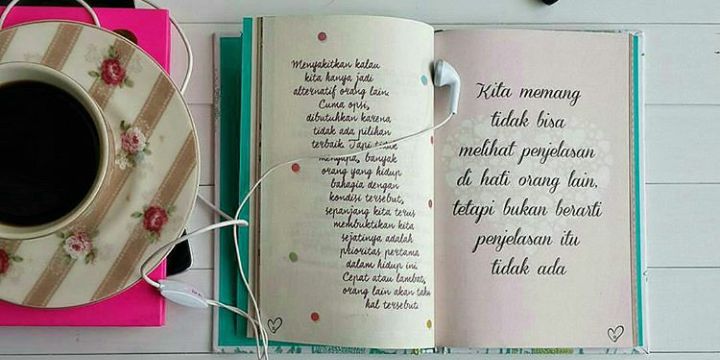 Menyakitkan kalau
kita hanya jadi
alternatif orang lain.
Cuma opsi,
dibutuhkan karena
tidak ada pilihan
terbaik. Tapi tidak
mengapa, banyak
orang yang hidup
bahagia dengan
kondisi tersebut,
sepanjang kita terus
membuktikan kita
sejatinya adalah
prioritas pertama
dalam hidup ini.
Cepat atau lambat,
orang lain akan tahu
hal tersebut.
Kita memang
tidak bisa
melihat penjelasan
di hati orang lain,
tetapi bukan berarti
penjelasan itu
tidak ada